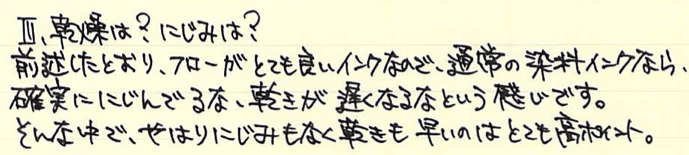 Ⅲ、乾燥は？にじみは？
前述したとおり、フローがとても良いインクなので、通常の染料インクなら、
確実ににじんでるな、乾きが遅くなるなという感じです。
そんな中で、やはりにじみもなく乾きも早いのはとても高ポイント。